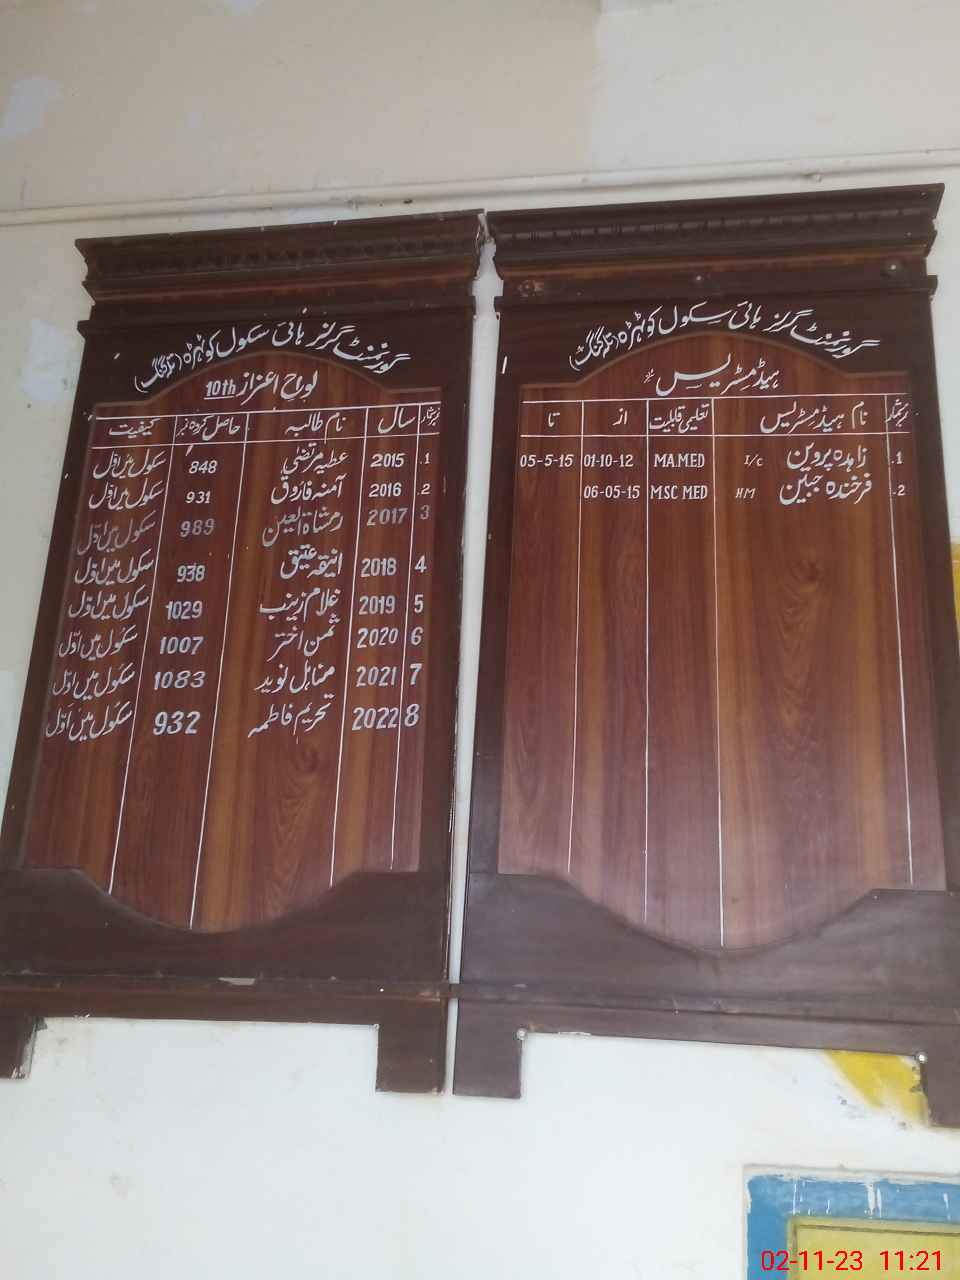 گورنمنٹ گرلز ہائی سکول کوٹہڑہ (تلہ گنگ)
لوح اعزاز 10th
نمبر شمار سال نام طالبہ حاصل کردہ نمبر کیفیت
1. 2015 عطیہ مرتضیٰ 848 سکول میں اوّل
2. 2016 آمنہ فاروق 931 سکول میں اوّل
3 2017 رمشاۃ العین 989 سکول میں اوّل
4 2018 انیقہ عتیق 938 سکول میں اوّل
5 2019 غلام زینب 1029 سکول میں اوّل
6 2020 ثمن اختر 1007 سکول میں اوّل
7 2021 مناہل نوید 1083 سکول میں اوّل
8 2022 تحریم فاطمہ 932 سکول میں اوّل
گورنمنٹ گرلز ہائی سکول کوٹہڑہ (تلہ گنگ)
ہیڈمسٹریس
نمبر شمار نام ہیڈمسٹریس تعلیمی قابلیت از تا
1. زاہدہ پروین I/c MA.MED 01-10-12 05-5-15
2. فرخندہ جبین HM MSC MED 06-05-15
02-11-23 11:21